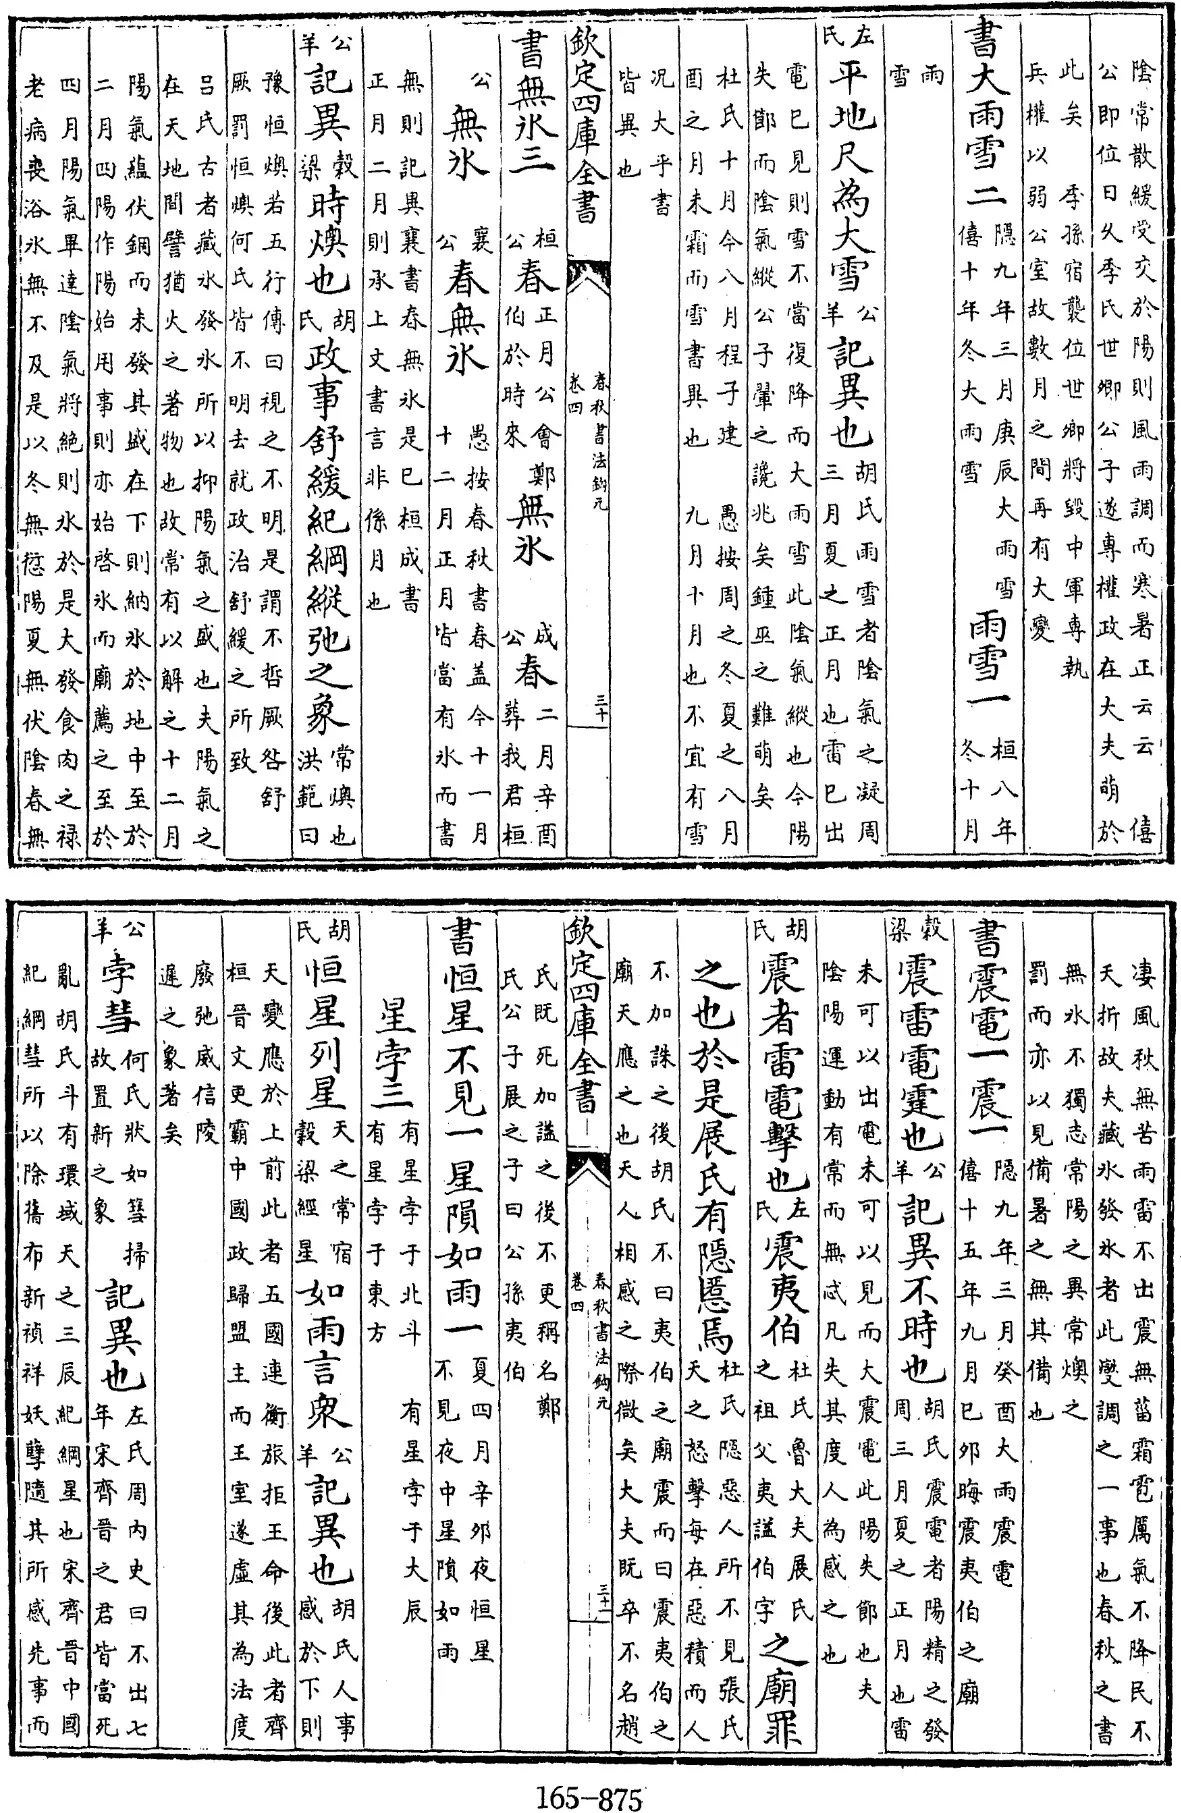 陰常散緩受交於陽則風雨調而寒暑正云云 僖
公即位日久季氏世卿公子遂專權政在大夫萌於
此矣 季孫宿襲位世卿將毀中軍專執
兵權以弱公室故數月之間再有大變
書大雨雪二 隱九年三月庚辰大雨雪 僖十年冬大雨雪 雨雪一 桓八年 冬十月
雨雪
左氏 平地尺為大雪 公羊 記異也 胡氏雨雪者陰氣之凝周 三月夏之正月也雷已出
電已見則雪不當復降而大雨雪此陰氣縱也今陽
失節而陰氣縱公子翬之讒兆矣鍾巫之難萌矣
杜氏十月今八月程子建 愚按周之冬夏之八月
酉之月未霜而雪書異也 九月十月也不宜有雪
况大乎書
皆異也
欽定四庫全書 春秋書法鈎元 卷四 三十
書無氷三 桓公 春 正月公會鄭 伯於時來 無氷 成公 春 二月辛酉 葬我君桓
公 無氷 襄公 春無氷 愚按春秋書春盖今十一月 十二月正月皆當有氷而書
無則記異襄書春無氷是已桓成書
正月二月則承上文書言非係月也
公羊 記異 穀梁 時燠也 胡氏 政事舒緩紀綱縱弛之象 常燠也 洪範曰
豫恒燠若五行傳曰視之不明是謂不哲厥咎舒
厥罰恒燠何氏皆不明去就政治舒緩之所致
吕氏古者藏氷發氷所以抑陽氣之盛也夫陽氣之
在天地間譬猶火之著物也故常有以解之十二月
陽氣蘊伏錮而未發其盛在下則納氷於地中至於
二月四陽作陽始用事則亦始啓氷而廟薦之至於
四月陽氣畢達陰氣將絶則氷於是大發食肉之禄
老病喪浴氷無不及是以冬無愆陽夏無伏陰春無
凄風秋無苦雨雷不出震無菑霜雹厲氣不降民不
夭折故夫藏氷發氷者此變調之一事也春秋之書
無氷不獨志常陽之異常燠之
罰而亦以見備暑之無其備也
書震電一震一 隱九年三月癸酉大雨震電 僖十五年九月己夘晦震夷伯之廟
穀梁 震雷電霆也 公羊 記異不時也 胡氏震電者陽精之發 周三月夏之正月也雷
未可以出電未可以見而大震電此陽失節也夫
陰陽運動有常而無忒凡失其度人為感之也
胡氏 震者雷電擊也 左氏 震夷伯 杜氏魯大夫展氏 之祖父夷謚伯字 之廟罪
之也於是展氏有隠慝焉 杜氏隠惡人所不見張氏 天之怒擊每在惡積而人
不加誅之後胡氏不曰夷伯之廟震而曰震夷伯之
廟天應之也天人相感之際微矣大夫既卒不名趙
氏既死加謚之後不更稱名鄭
氏公子展之子曰公孫夷伯
欽定四庫全書 春秋書法鈎元 卷四 三十一
書恒星不見一星隕如雨一 夏四月辛夘夜恒星 不見夜中星隕如雨
星孛三 有星孛于北斗 有星孛于大辰 有星孛于東方
胡氏 恒星列星 天之常宿 穀梁經星 如雨言衆 公羊 記異也 胡氏人事 感於下則
天變應於上前此者五國連衡旅拒王命後此者齊
桓晉文更霸中國政歸盟主而王室遂虛其為法度
廢弛威信陵
遲之象著矣
公羊 孛彗 何氏狀如篲掃 故置新之象 記異也 左氏周内史曰不出七 年宋齊晉之君皆當死
亂胡氏斗有環域天之三辰紀綱星也宋齊晉中國
紀綱彗所以除舊布新禎祥妖孽隨其所感先事而
165-875